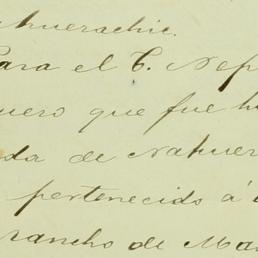 ahuerachic.
Para el C. Nep
uero que fue h
da de Nahuer
pertenecido á
rancho de Ma